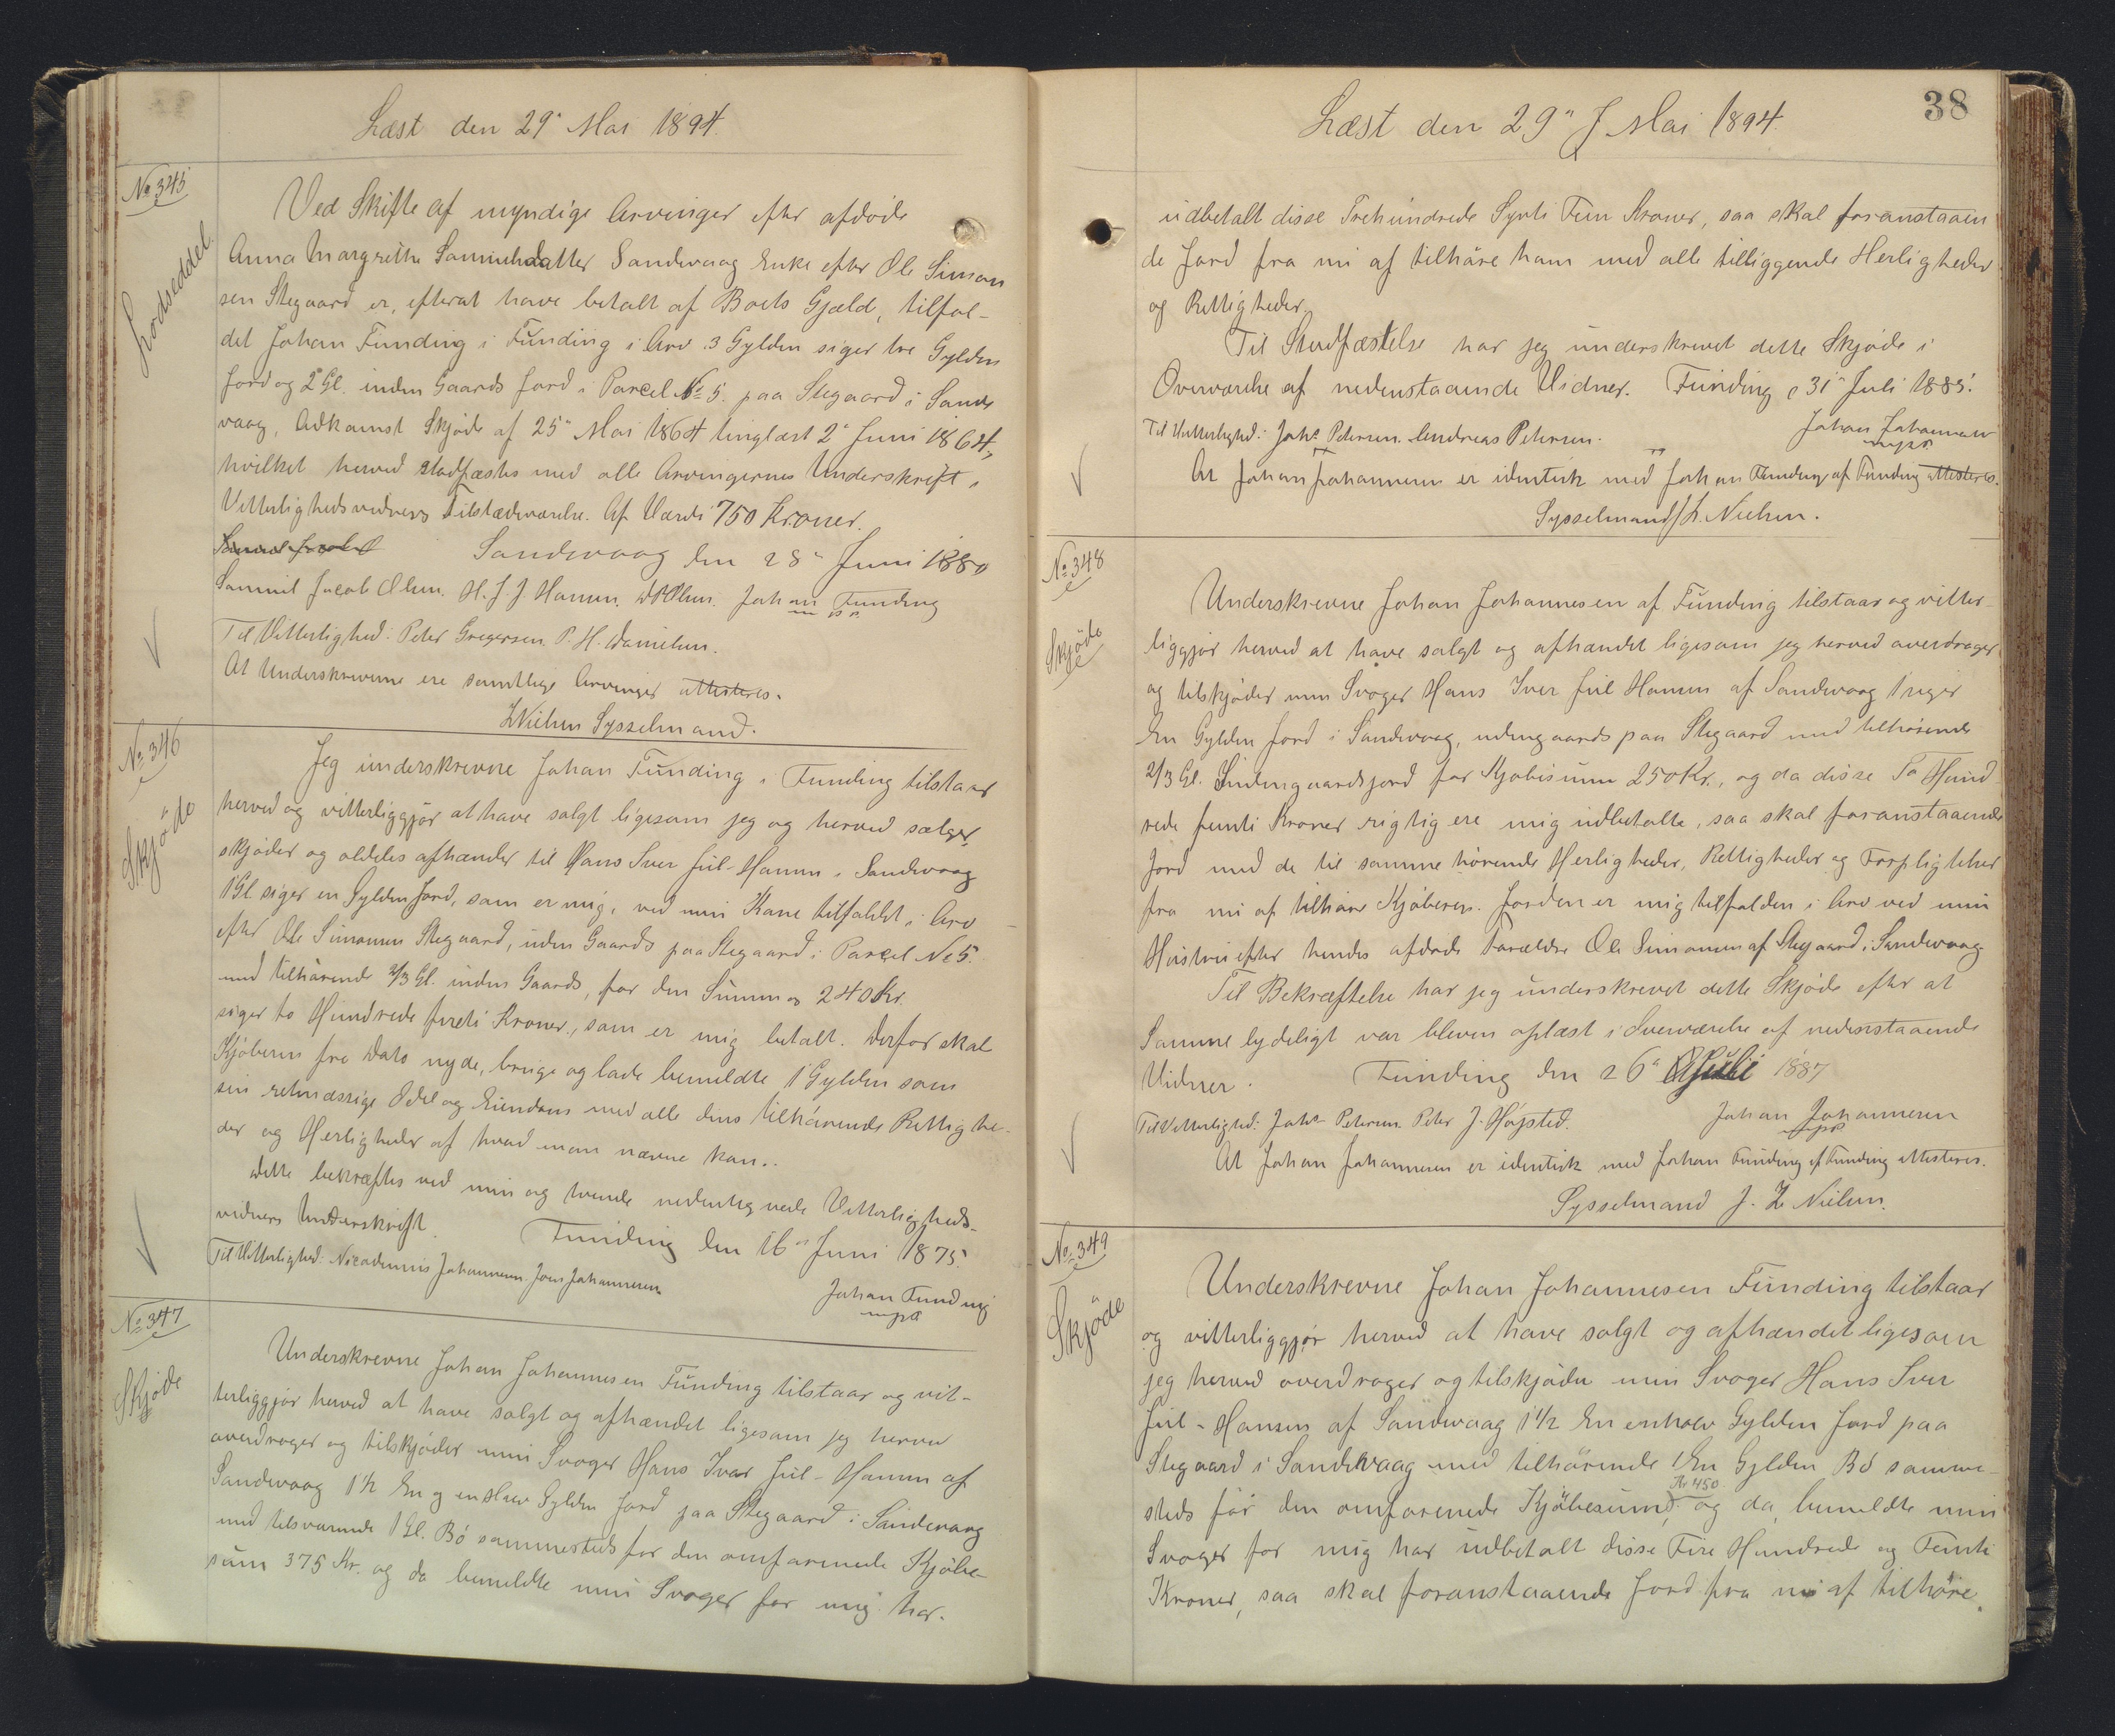 Læst den 29" Mai 1894.
No 345
Lodseddel
Ved Skifte af myndige Arvinger efter afdøde
Anna Margrethe Samuelsdatter Sandevaag Enke efter Ole Simon
sen Stegaard er, efterat have betalt af Boets Gjæld, tilfal-
det Johan Funding i Funding i Arv 3 Gylden siger tre Gylden
Jord og 2 Gl. inden Gaards Jord i Parcel No 5. paa Stegaard i Sande
vaag, Adkomst Skjøde af 25" Mai 1864 tinglæst 2" Juni 1864,
hvilket herved stadfæstes med alle Arvingernes Underskrift i
Vitterlighedsvidners Tilstedeværelse. Af Værdi 750 Kroner.
Sandevaag den 28" Juni 1880
Samuel Jacob Olsen. H. J. J. Hansen. Johan Funding
Til Vitterlighed: Peter Gregersen. P. H. Danielsen.
At Underskriverne ere samtlige Arvinger attesteres.
Nielsen Sysselmand.
No 346
Skjöde
Jeg underskrevne Johan Funding i Funding tilstaar
herved og vitterliggjør at have solgt ligesom jeg og herved sælger,
skjøder og aldeles afhænder til Hans Iver Jul-Hansen i Sandevaag
1 Gl. siger en Gylden Jord, som er mig, ved min Kone tilfaldet i Arv
efter Ole Simonsen Stegaard, uden Gaards paa Stegaard i Parcel No 5.
med tilhørende 2/3 Gl. inden Gaards, for den Summa 240 Kr.
siger to Hundrede fireti Kroner, som er mig betalt. Derfor skal
Kjøberen fra Dato nyde, bruge og lade bemeldte 1 Gylden som
sin retmæssige Odel og Eiendom med alle dens tilhørende Rettighe-
der og Herligheder af hvad man nævne kan..
Dette bekræftes ved min og tvende nedentegnede Vitterligheds-
vidners Underskrift. Funding den 16" Juni 1875.
Til Vitterlighed: Nicodemus Johannesen. Joen Johannesen
Johan Funding
mpa
No 347
Skjöde
Underskrevne Johan Johannesen Funding tilstaar og vit-
terliggjør herved at have solgt og afhændet ligesom jeg herved
overdrager og tilskjøder min Svoger Hans Iver Jul-Hansen af
Sandevaag 1 1/2 En og en halv Gylden Jord paa Stegaard i Sandevaag
med tilsvarende 1 Gl. Bø sammesteds for den omforenede Kjøbe-
sum 375 Kr. og da bemeldte min Svoger for mig har.
38
Læst den 29" Mai 1894.
udbetalt disse Trehundrede Syvti Fem Kroner, saa skal foranstaaen
de Jord fra nu af tilhøre ham med alle tilliggende Herligheder
og Rettigheder.
Til Stadfæstelse har jeg underskrevet dette Skjøde i
Overværelse af nedenstaaende Vidner. Funding 31" Juli 1885.
Til Vitterlighed: Johs Petersen. Andreas Petersen. Johan Johannesen
mpa
At Johan Johannesen er identisk med Johan Funding af Funding attesteres.
Sysselmand Nielsen.
No 348
Skjöde
Underskrevne Johan Johannesen af Funding tilstaar og vitter-
liggjør herved at have solgt og afhændet ligesom jeg herved overdrager
og tilskjøder min Svoger Hans Iver Jul Hansen af Sandevaag 1 siger
En Gylden Jord i Sandevaag, udengaards paa Stegaard med tilhørende
2/3 Gl. Indengaardsjord for Kjøbesum 250 Kr., og da disse To Hund
rede femti Kroner rigtig ere mig udbetalte, saa skal foranstaaende
Jord med de til samme hørende Herligheder, Rettigheder og Forpligtelser
fra nu af tilhøre Kjøberen. Jorden er mig tilfalden i Arv ved min
Hustru efter hendes afdøde Forældre Ole Simonsen af Stegaard i Sandevaag
Til Bekræftelse har jeg underskrevet dette Skjøde efter at
Samme lydeligt var bleven oplæst i Overværelse af nedenstaaende
Vidner. Funding den 26" Juli 1887
Til Vitterlighed: Johs Petersen. Peter J. Højsted. Johan Johannesen
mpa
At Johan Johannesen er identisk med Johan Funding af Funding attesteres.
Sysselmand J. Z. Nielsen.
No 349
Skjöde
Underskrevne Johan Johannesen Funding tilstaar
og vitterliggjør herved at have solgt og afhændet ligesom
jeg herved overdrager og tilskjøder min Svoger Hans Iver
Jul-Hansen af Sandevaag 1 1/2 En enhalv Gylden Jord paa
Stegaard i Sandevaag med tilhørende 1 En Gylden Bø samme-
steds for den omforenede Kjøbesum, Kr 450. og da bemeldte min
Svoger for mig har udbetalt disse Fire Hundrede og Femti
Kroner, saa skal foranstaaende Jord fra nu af tilhøre.